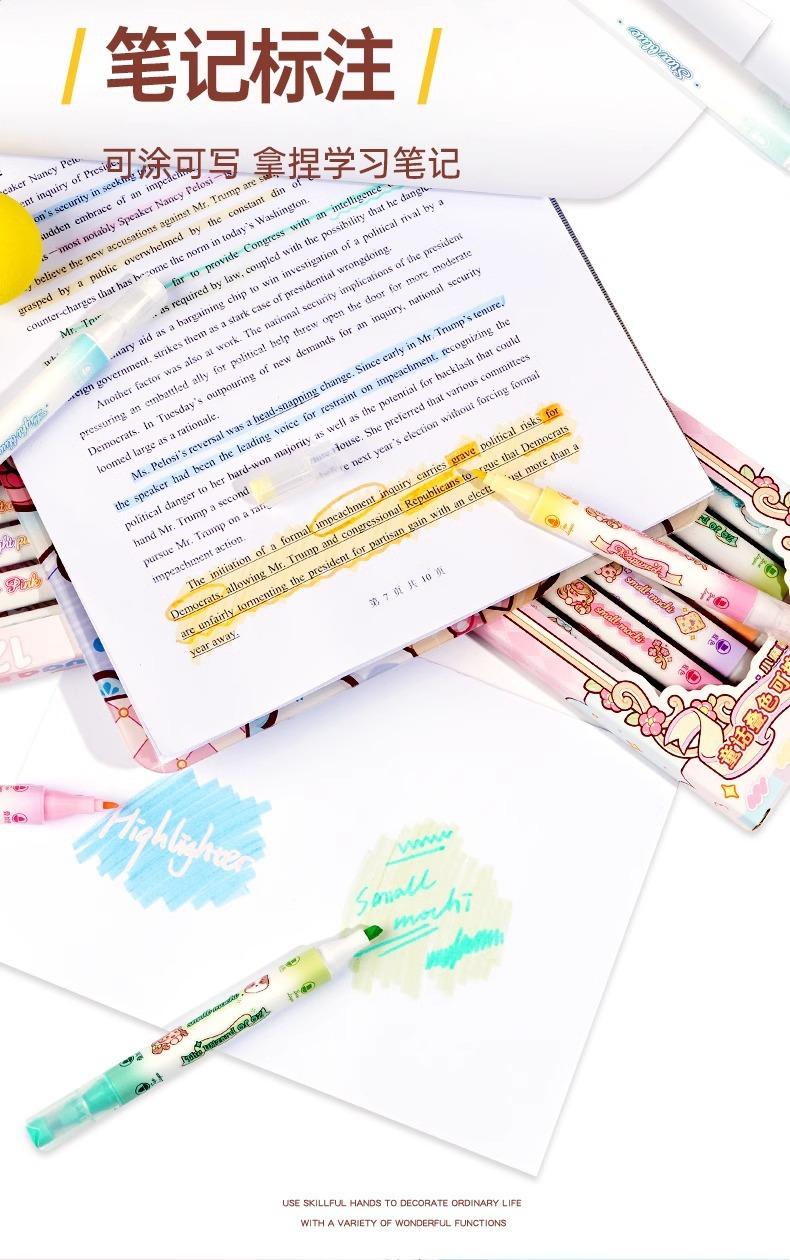 笔记标注
可涂可写 拿捏学习笔记
eaker Nancy Pelo
ent inquiry of Preside
on's security in seeking
sudden embrace of an impeachme
is — most notably Speaker Nancy Pelosi —
y believe the new accusations against Mr. Trump are
grasped by a public overwhelmed by the constant din of
counter-charges that has become the norm in today's Washington.
Mr. Trump far to provide Congress with an intelligence
as required by law, coupled with the possibility that he
military aid as a bargaining chip to win investigation of a political rival by a
foreign government, strikes them as a stark case of presidential wrongdoing.
Another factor was also at work. The national security implications of the president
pressuring an embattled ally for political help threw open the door for more moderate
Democrats. In Tuesday's outpouring of new demands for an inquiry, national security
loomed large as a rationale.
Ms. Pelosi's reversal was a head-snapping change. Since early in Mr. Trump's tenure,
the speaker had been the leading voice for restraint on impeachment, recognizing the
political danger to her hard-won majority as well as the potential for backlash that could
hand Mr. Trump a second House. She preferred that various committees
pursue Mr. Trump on a range next year's election without forcing formal
impeachment action.
The initiation of a formal impeachment inquiry carries grave political risks for
Democrats, allowing Mr. Trump and congressional Republicans to argue that Democrats
are unfairly tormenting the president for partisan gain with an elect just more than a
year away.
第 7 页 共 10 页
small mochi
童话叠色可
Highlighter
Small
mochi
small mochi
The wizard of oz
USE SKILLFUL HANDS TO DECORATE ORDINARY LIFE
WITH A VARIETY OF WONDERFUL FUNCTIONS